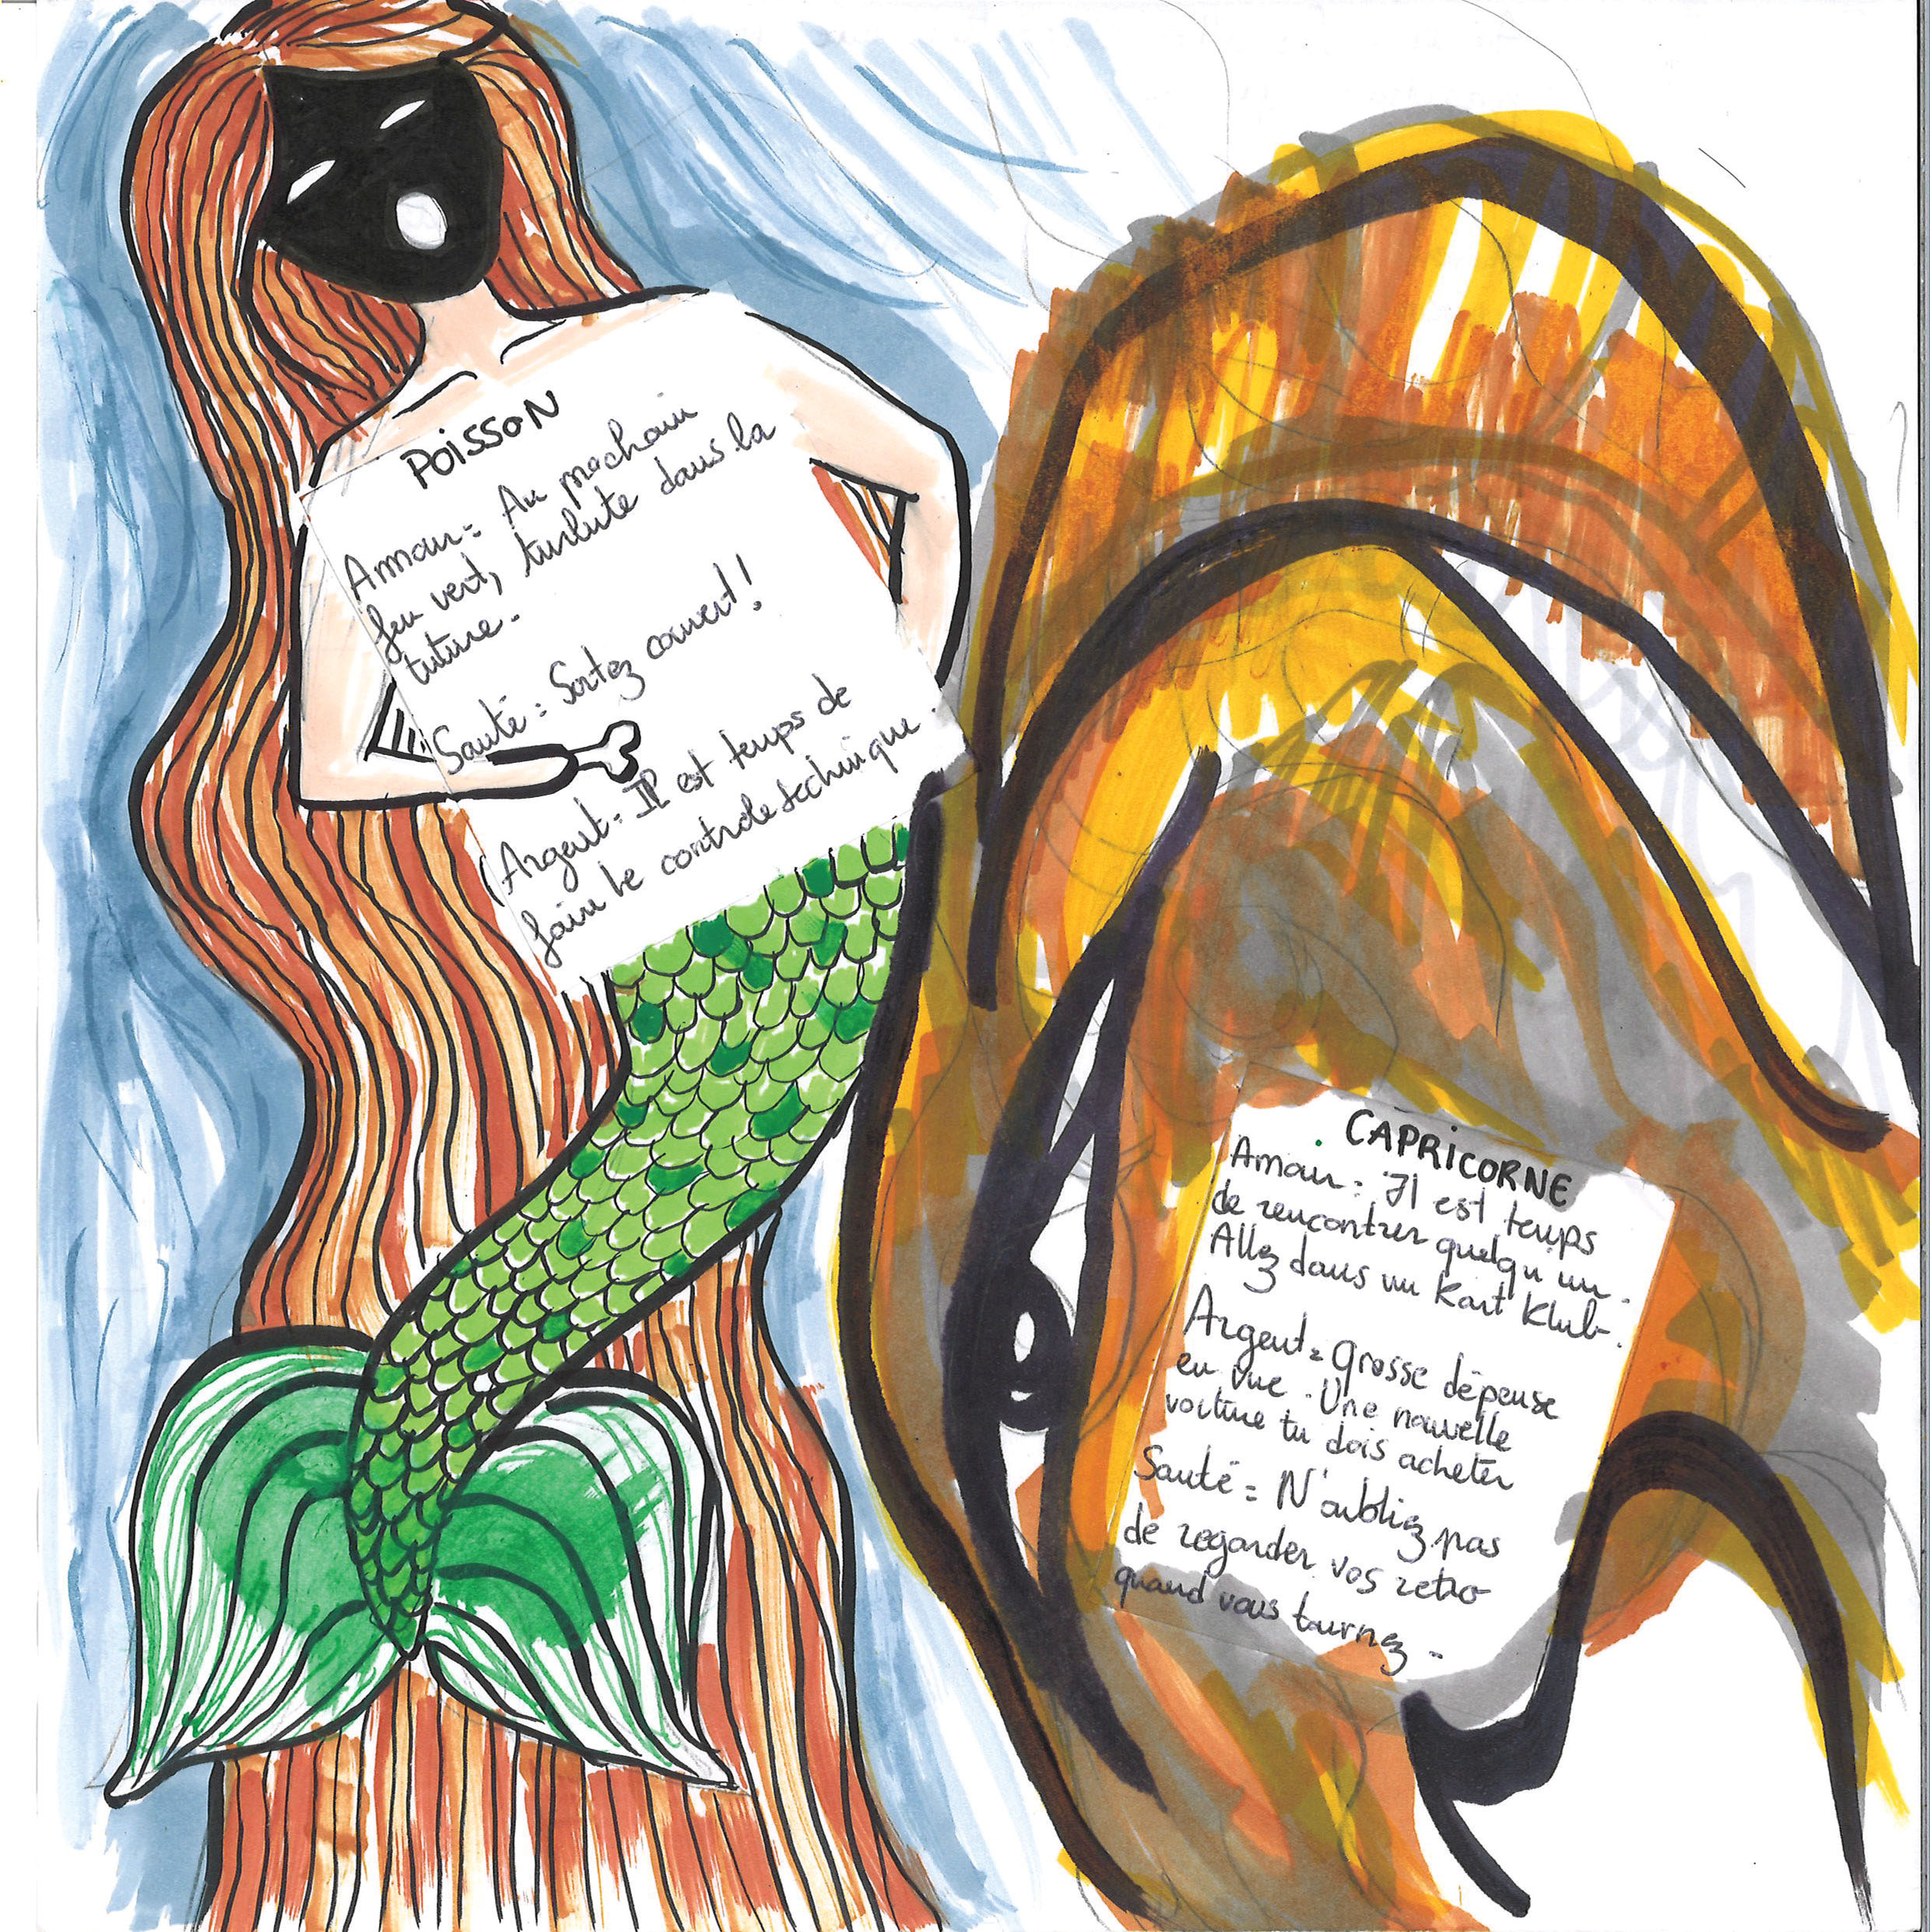 POISSON
Amour = Au prochain
feu vert, turlute dans la
tuture.
Santé = Sortez couvert!
Argent = Il est temps de
faire le controle technique.
CAPRICORNE
Amour = Il est temps
de rencontrer quelqu'un.
Allez dans un Kart Klub.
Argent = Grosse dépense
en vue. Une nouvelle
voiture tu dois acheter
Santé = N'oubliez pas
de regarder vos retro
quand vous tournez.